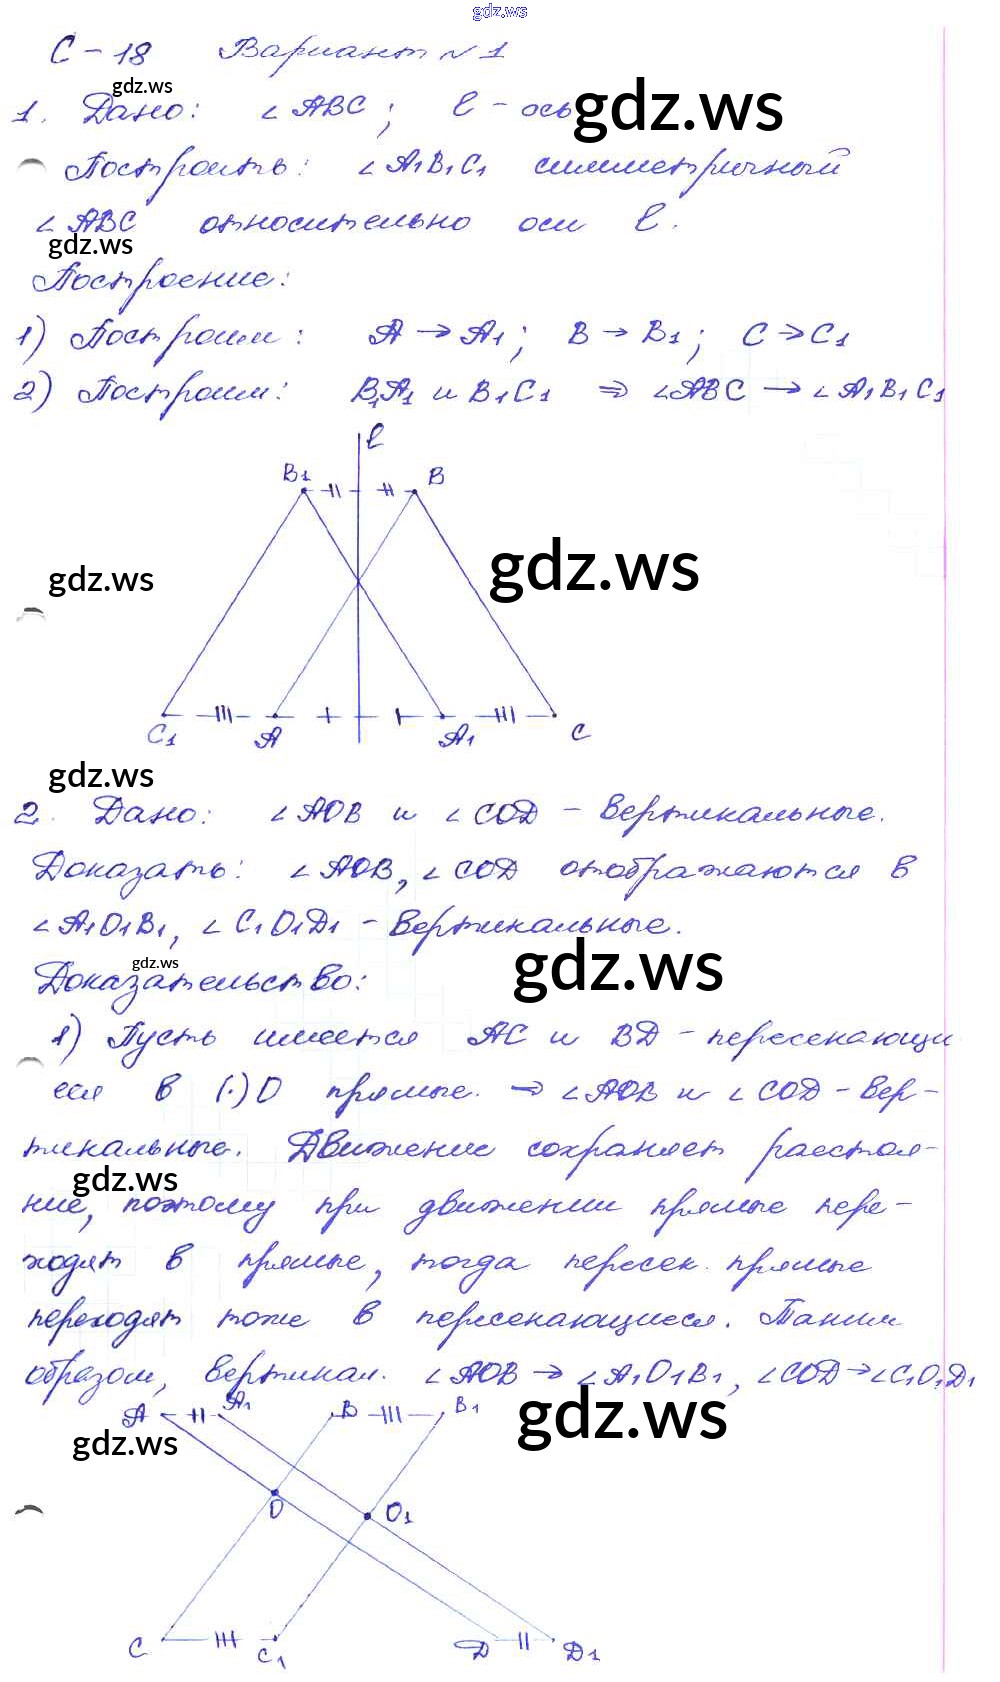 gdz.ws
С-18 Вариант №1
gdz.ws
1. Дано: ∠ABC; l - ось
gdz.ws
Построить: ∠A1B1C1 симметричный
∠ABC относительно оси l.
gdz.ws
Построение:
1) Построим: A → A1; B → B1; C → C1
2) Построим: B1A1 и B1C1 ⇒ ∠ABC → ∠A1B1C1
l
B1 B
gdz.ws gdz.ws
C1 A A1 C
gdz.ws
2. Дано: ∠AOB и ∠COD - вертикальные.
Доказать: ∠AOB, ∠COD отображаются в
∠A1O1B1, ∠C1O1D1 - вертикальные.
gdz.ws gdz.ws
Доказательство:
1) Пусть имеется AC и BD - пересекающи
еся в (·) O прямые. → ∠AOB и ∠COD - вер-
тикальные. Движение сохраняет расстоя-
gdz.ws
ние, поэтому при движении прямые пере-
ходят в прямые, тогда пересек. прямые
переходят тоже в пересекающиеся. Таким
образом, вертикал. ∠AOB → ∠A1O1B1, ∠COD → ∠C1O1D1
gdz.ws
A A1 B B1
gdz.ws
O O1
C C1 D D1